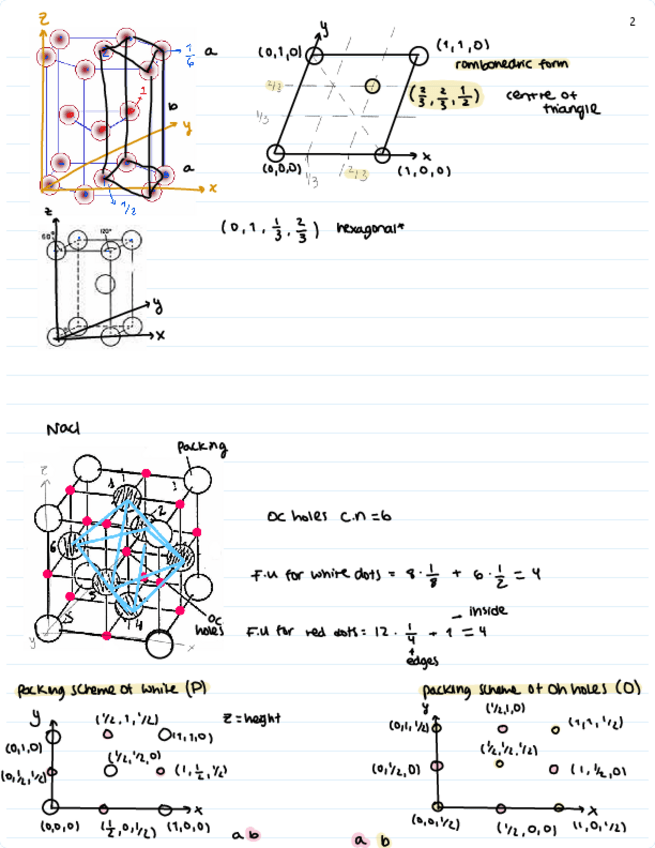 2
z
1/6
a
1
b
y
a
x
1/2
y
(0,1,0)
(1,1,0)
rombohedric form
2/3
(2/3, 2/3, 1/2)
centre of triangle
1/3
x
(0,0,0)
1/3
2/3
(1,0,0)
z
60°
120°
y
x
(0,1,1/3,2/3) hexagonal*
Nacl
packing
z
1
2
3
6
5
4
oc holes
y
x
oc holes c.n=6
F.u for white dots = 8·1/8 + 6·1/2 = 4
inside
F.u for red dots = 12·1/4 + 1 = 4
edges
packing scheme of white (P)
y
(1/2,1,1/2)
z = height
(0,1,0)
(1,1,0)
(1/2,1/2,0)
(0,1/2,1/2)
(1,1/2,1/2)
x
(0,0,0)
(1/2,0,1/2)
(1,0,0)
a b
packing scheme of Oh holes (O)
y
(1/2,1,0)
(0,1,1/2)
(1,1,1/2)
(1/2,1/2,1/2)
(0,1/2,0)
(1,1/2,0)
x
(0,0,1/2)
(1/2,0,0)
(1,0,1/2)
a b